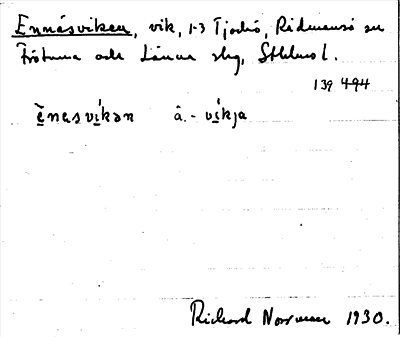 Ennäsviken, vik, 1-3 Tjockö, Rådmansö sn
Frötuna och Länna skg, Sthlms l.
139 494
ènesvíkən â.-víkja
Richard Norrman 1930.